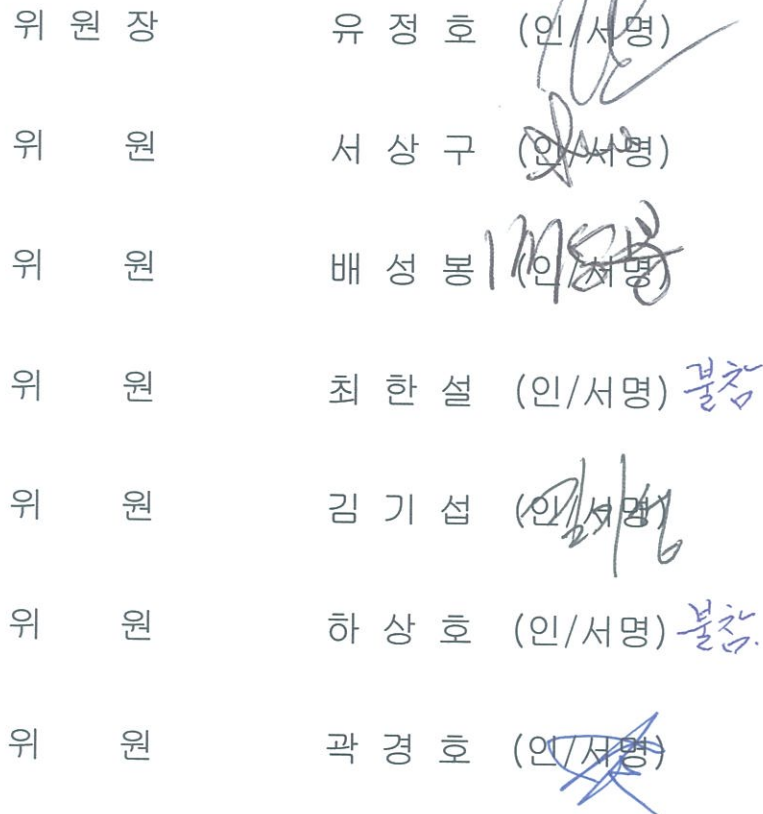 위 원 장 유 정 호 (인/서명)
위 원 서 상 구 (인/서명)
위 원 배 성 봉 (인/서명)
위 원 최 한 설 (인/서명) 불참
위 원 김 기 섭 (인/서명)
위 원 하 상 호 (인/서명) 불참.
위 원 곽 경 호 (인/서명)